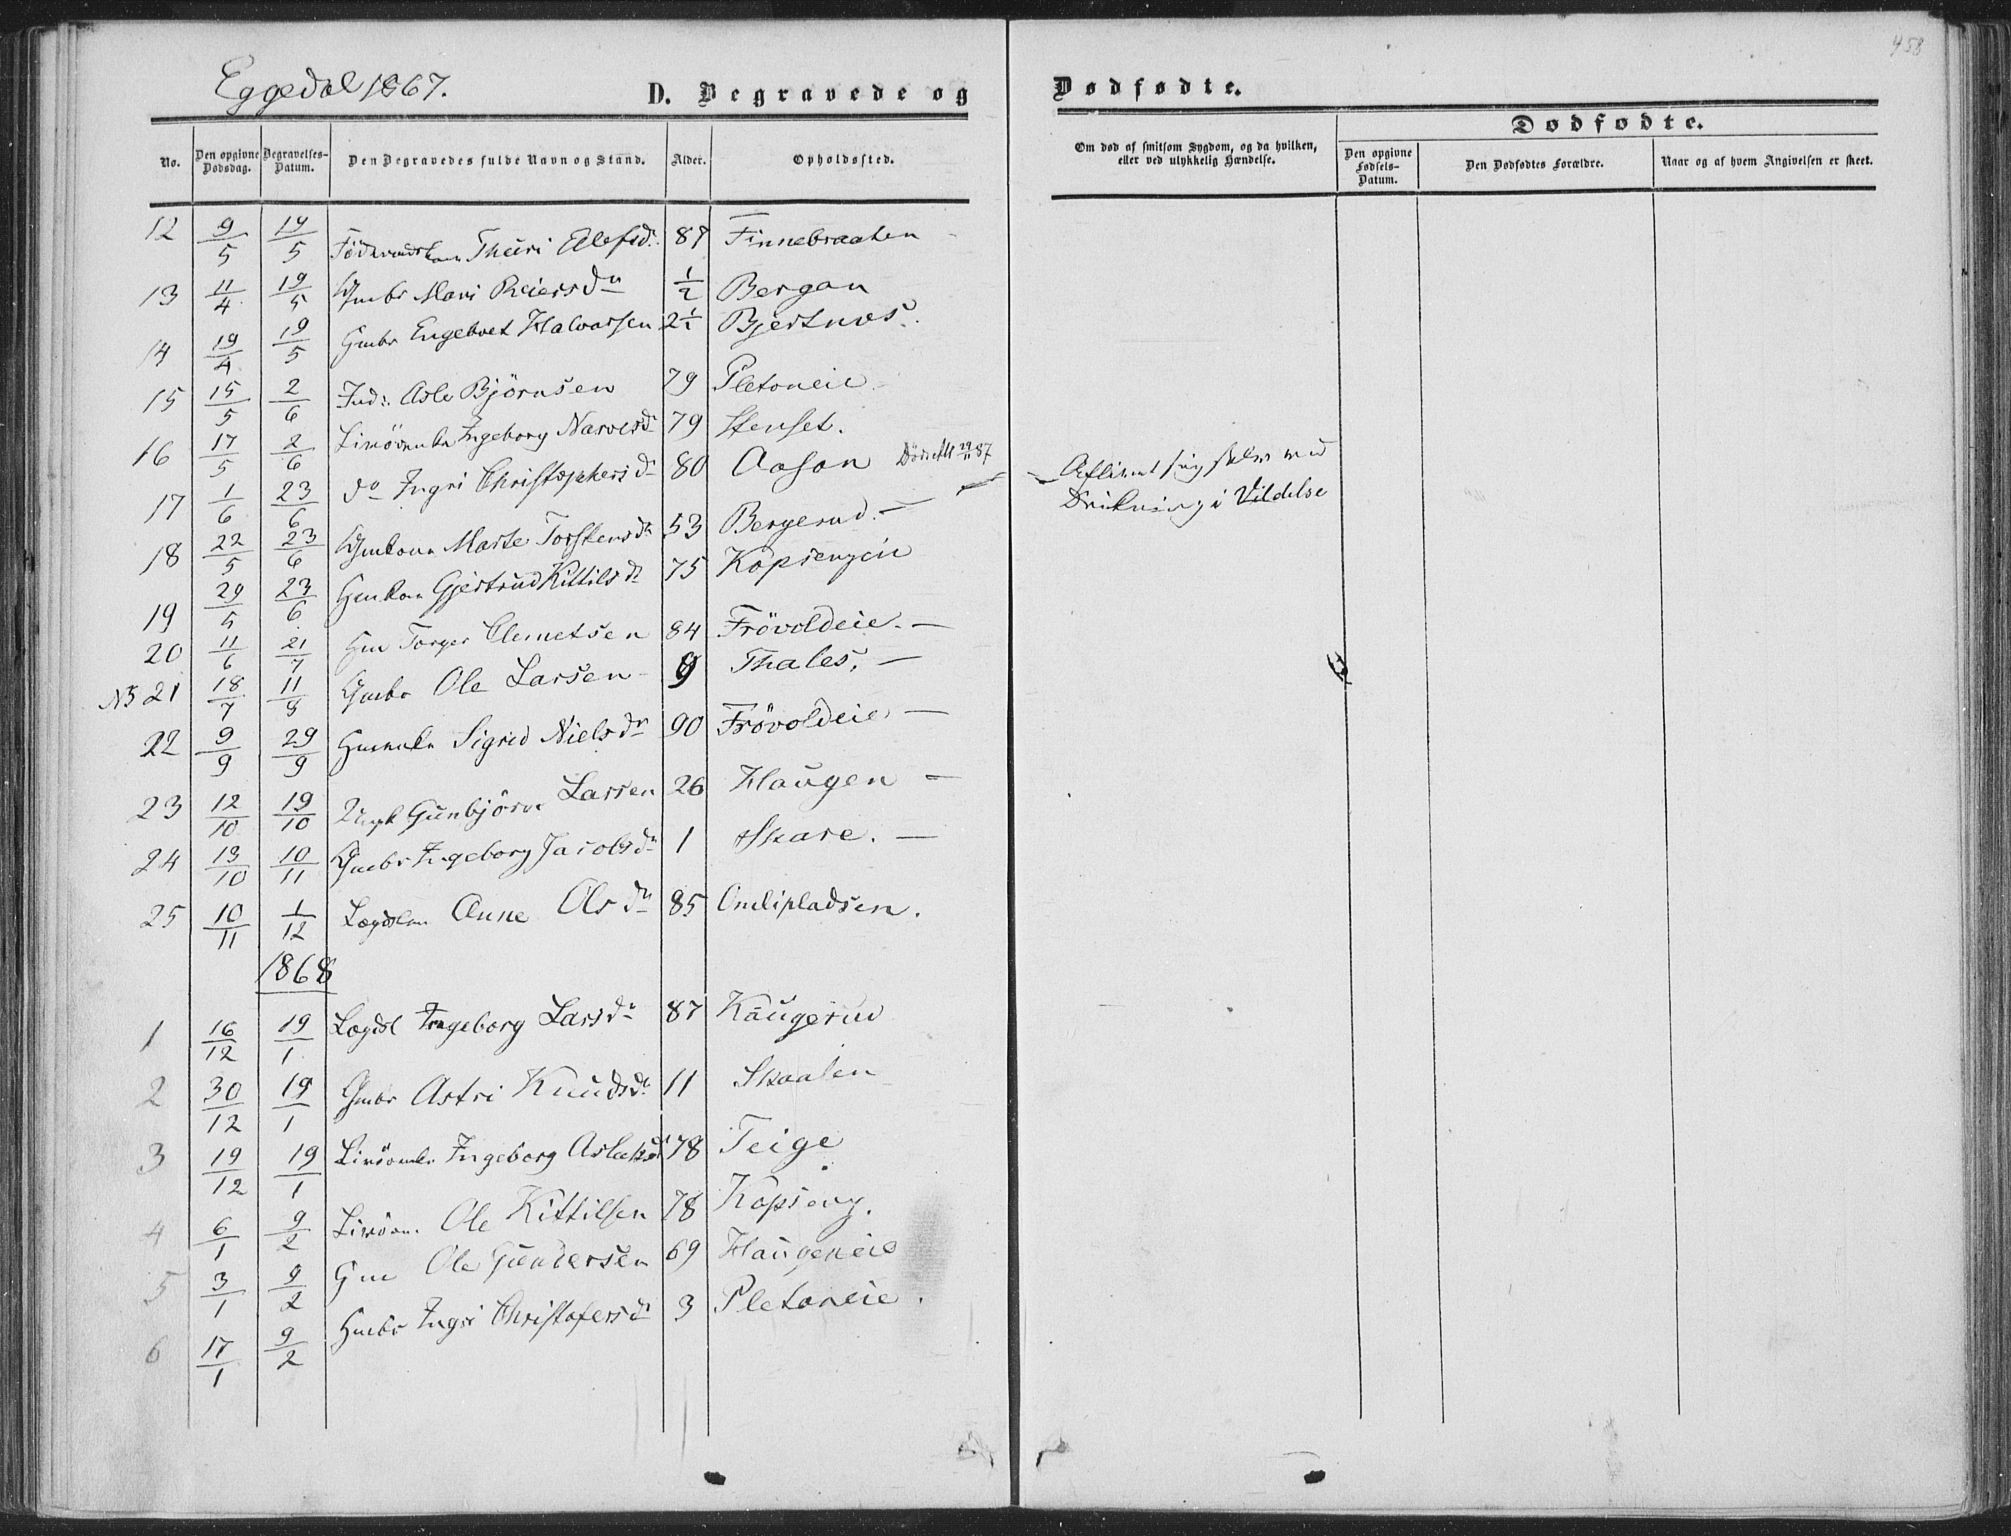 458
Eggedal 1867.
D. Begravede og Dødfødte.
No. | Den opgivne Dødsdag. | Begravelses-Datum. | Den Begravedes fulde Navn og Stand. | Alder. | Opholdssted. | Om død af smitsom Sygdom, og da hvilken, eller ved ulykkelig Hændelse. | Dødfødte. | Den opgivne Fødsels-Datum. | Den Dødfødtes Forældre. | Naar og af hvem Angivelsen er skeet.
12 9/5 19/5 Thuri Elefsd. 87 Finnebraaten
13 11/4 19/5 Gmbr Mari Reiersdr 1/2 Bergan
14 19/4 19/5 Gmbr Engebret Halvorsen 2 Bjertnæs.
15 15/5 2/6 Ind: Asle Björnsen 79 Pletoneie
16 17/5 2/6 Ingeborg Narvesdr 79 Stenset.
17 1/6 23/6 do Ingri Christophersdr 80 Aasan
18 22/5 23/6 Gmkone Marte Torstensdr 53 Bergerud. — Aflivet sig selv ved
Drukning i Vildelse
19 29/5 23/6 Gmkone Gjertrud Kittilsdr 75 Kopseng
20 11/6 21/7 Hm Torger Clemetsen 84 Frövoldeie. —
NB 21 18/7 11/8 Gmbr Ole Larsen 9 Thales. —
22 9/9 29/9 Sigrid Nielsdr 90 Frövoldeie —
23 12/10 19/10 Ungk Gunbjörn Larsen 26 Haugen —
24 13/10 10/11 Gmbr Ingeborg Jacobsdr 1 Skare. —
25 10/11 1/12 Lægdslem Anne Olsdr 85 Omlipladsen.
1868
1 16/12 19/1 Lægdsl Ingeborg Larsdr 87 Kaugerud
2 30/12 19/1 Gmbr Astri Knudsdr 11 Skaalen
3 19/12 19/1 Ingeborg Aslaksdr 78 Teige
4 6/1 9/2 Ole Kittilsen 78 Kopseng.
5 3/1 9/2 Hm Ole Gundersen 69 Haugeneie
6 17/1 9/2 Hmbr Ingri Christofersdr 3 Pletoneie.